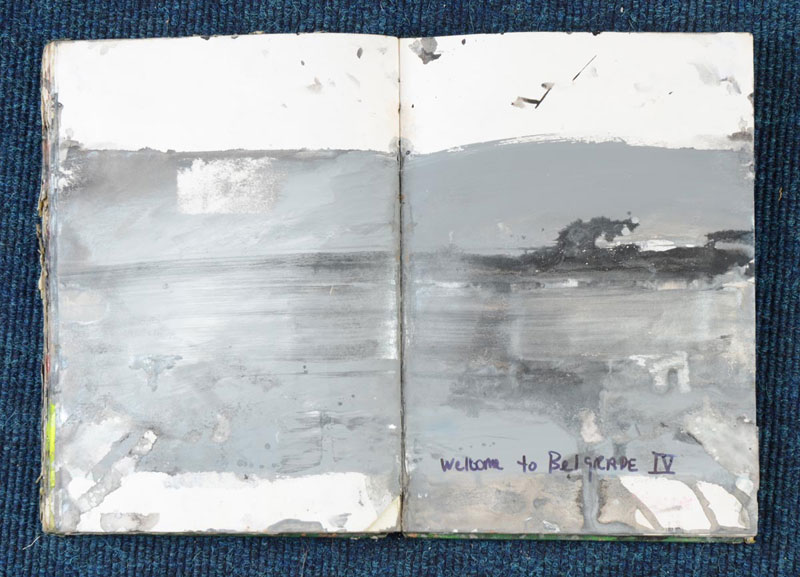 Welcome to BelGRADE IV